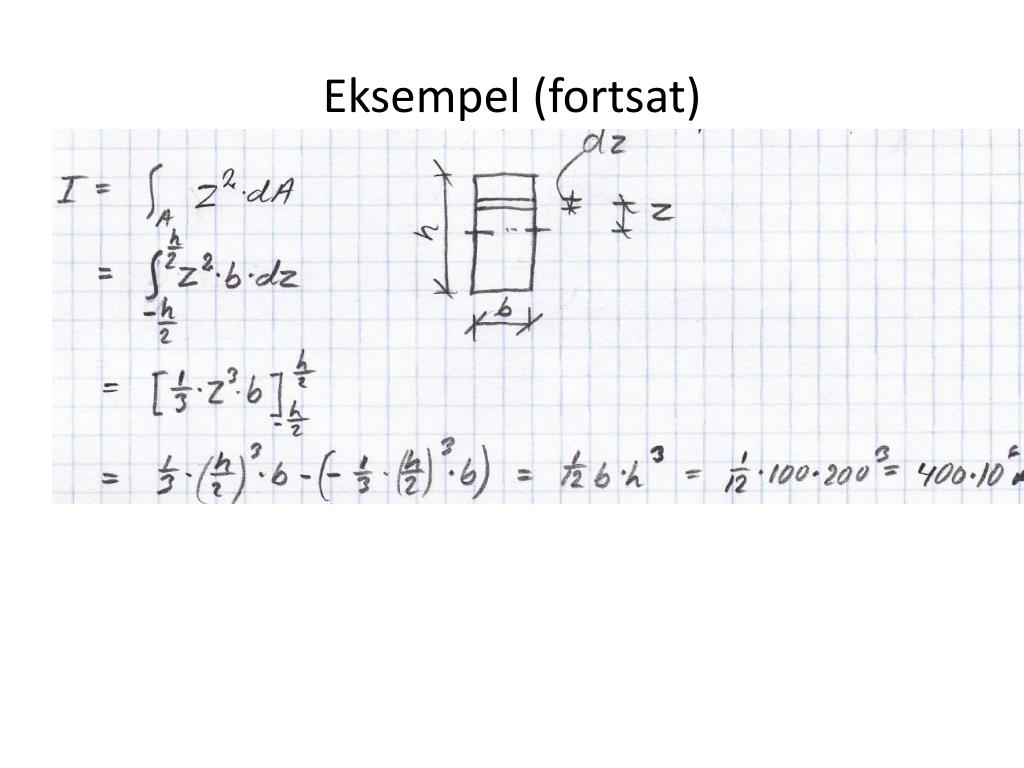 Eksempel (fortsat)
dz
I = ∫_A z²·dA
h
z
= ∫_{-h/2}^{h/2} z²·b·dz
b
= [1/3·z³·b]_{-h/2}^{h/2}
= 1/3·(h/2)³·b-(-1/3·(h/2)³·b) = 1/12 b·h³ = 1/12·100·200³ = 400·10